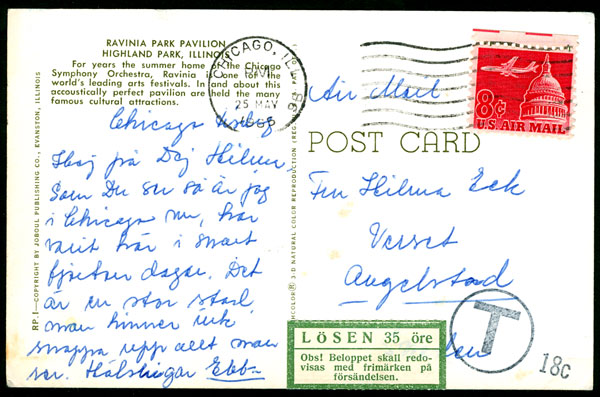 RAVINIA PARK PAVILION
HIGHLAND PARK, ILLINOIS
For years the summer home of the Chicago
Symphony Orchestra, Ravinia is one of the
world's leading arts festivals. In and about this
accoustically perfect pavilion are held the many
famous cultural attractions.
CHICAGO, ILL
25 MAY
Chicago
Hej på Dej Hilma
Som Du ser så är jag
i Chicago nu, har
varit här i snart
fjorton dagar. Det
är en stor stad
man hinner inte
snappa upp allt man
ser. Hälsningar Ebba
RP 1—COPYRIGHT BY JOBOUL PUBLISHING CO., EVANSTON, ILLINOIS
3-D NATURAL COLOR REPRODUCTION
8¢
U.S. AIR MAIL
Air Mail
POST CARD
Fru Hilma Eek
Verset
Angelstad
LÖSEN 35 öre
Obs! Beloppet skall redo-
visas med frimärken på
försändelsen.
T
18c